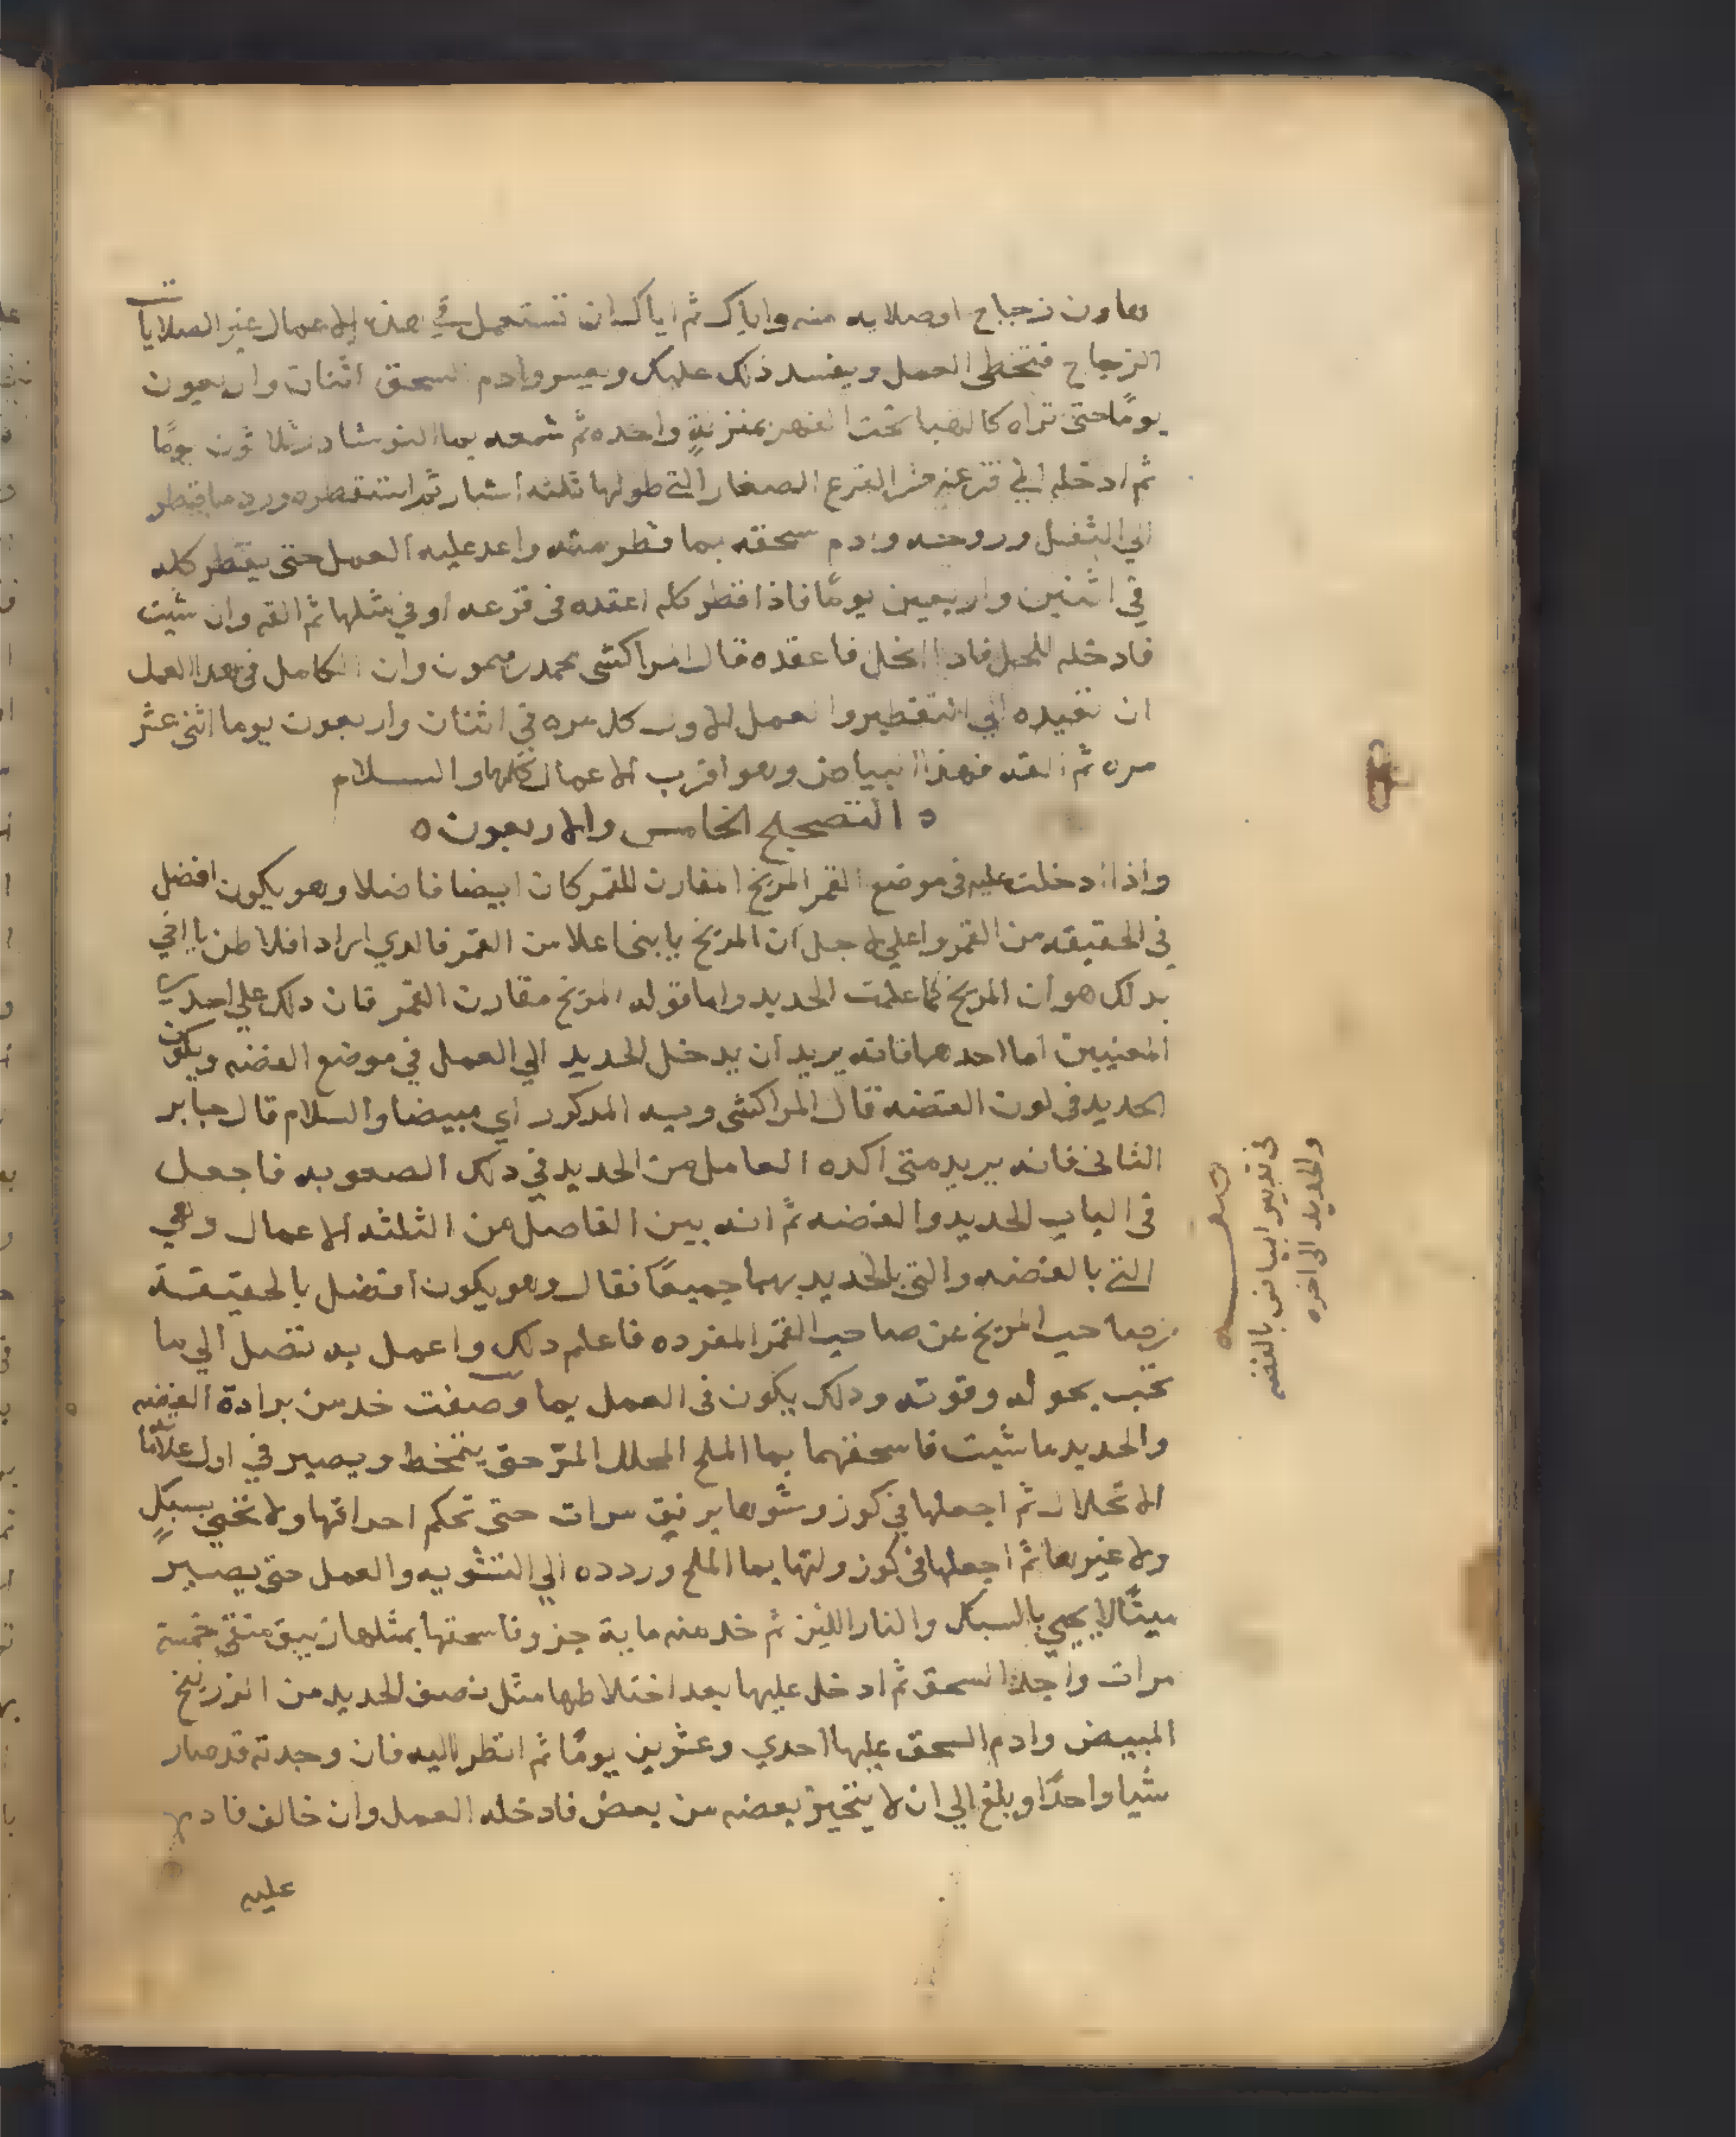 هاون زجاج او صلايه منه واياك ثم اياك ان تستعمل في هذه الاعمال غير الصلايات
الزجاج فتخطى العمل ويفسد ذلك عليك ويعسر وادم السحق اثنان واربعون
يومًا حتى تراه كالهبا تحت الفهر بمنزلةٍ واحده ثم شمعه بما النوشادر ثلاثون يومًا
ثم ادخله الي قرعه من القرع الصغار التي طولها ثلثه اشبار ثم استقطره ورد ما قطر
الي الثفل وروحه وادم سحقه بما قطر منه واعد عليه العمل حتى يقطر كله
في اثنين واربعين يومًا فاذا قطر كله اعقده في قرعه او في مثلها ثم القه وان شيت
فادخله للحل فاذا انحل فاعقده قال المراكشى محمد بن ميمون وان الكامل في هدا العمل
ان تعيده الي التقطير والعمل الاول كل مره في اثنان واربعون يوما اثنى عشر
مره ثم القه فهذا البياض وهو اقرب الاعمال كلها والسلام
ه التصحيح الخامس والاربعون ه
واذا ادخلت عليه في موضع القمر المريخ المقارن للقمر كان ابيضا فاضلا وهو يكون افضل
في الحقيقه من القمر واعلي لاجل ان المريخ يابنى اعلا من القمر فالدي اراد افلاطن يااخي
بدلك هو ان المريخ كما علمت الحديد واما قوله المريخ مقارن القمر فان دلك علي احدي
المعنيين اما احدهما فانه يريد ان يدخل الحديد الي العمل في موضع الفضه ويكون
الحديد في لون الفضه قال المراكشى وسه المدكور اي مبيضا والسلام قال جابر
الثانى فانه يريد متى اكده العامل من الحديد في دلك الصعوبه فاجعل
في الباب الحديد والفضه ثم انه بين الفاصل من الثلثه الاعمال وهي
التي بالفضه والتي بالحديد بهما جميعًا فقال وهو يكون افضل بالحقيقة
صاحب المريخ عن صاحب القمر المفرده فاعلم دلك واعمل به تصل الي ما
تحب بحوله وقوته ودلك يكون في العمل بما وصفت خد من برادة الفضه
والحديد ما شيت فاسحقهما بما الملح المحلل المتر حتى يتمخط ويصير في اول علامة
الانحلال ثم اجعلها في كوز وشوها برفق مرات حتى تحكم احراقها ولا تحيي بسبكٍ
ولا غيرها ثم اجعلها في كوز ولتها بما الملح وردده الي التشويه والعمل حتى يصير
ميتًا لا يحيي بالسبك والنار اللين ثم خد منه ماية جز وفاسحقها بمثلها زيبق منقى خمسة
مرات واجد السحق ثم ادخل عليها بعد اختلاطها مثل نصف الحديد من الزرنيخ
المبيض وادم السحق عليها احدي وعشرين يومًا ثم انظر اليه فان وجدته قد صار
شيا واحدًا وبلغ الي ان لا يتحيز بعضه من بعض فادخله العمل وان خالف فادم
عليه
في تدبير ابيا نى بالفضه
والحديد الى اخره